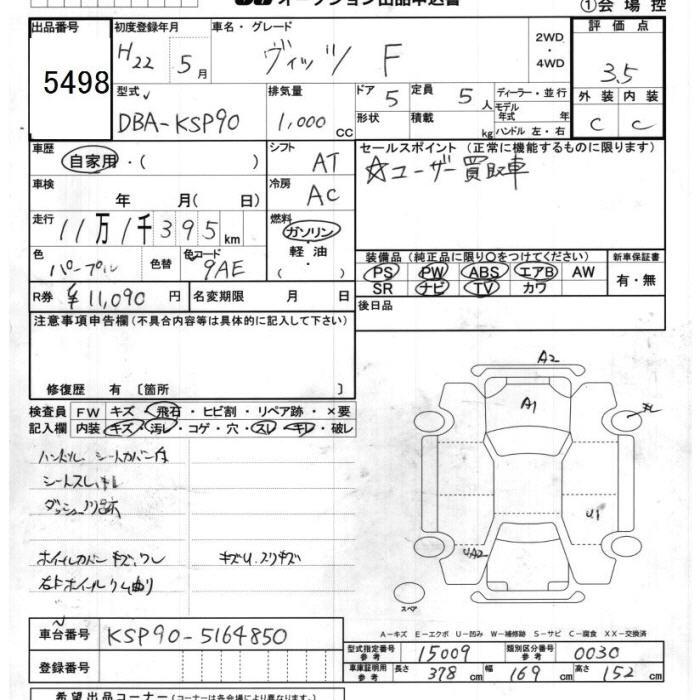 オークション出品申込書 ①会場控
出品番号 初度登録年月 車名・グレード 2WD・4WD 評価点
5498 H22 5月 ヴィッツ F 3.5
型式 排気量 ドア 定員 ディーラー・並行 外装 内装
DBA-KSP90 1,000 cc 5 5人 モデル年式 年 C C
形状 積載 kg ハンドル 左・右
車歴 自家用・( ) シフト AT セールスポイント (正常に機能するものに限ります)
☆ユーザー買取車
車検 年 月( 日) 冷房 AC
走行 11万1千395km 燃料 ガソリン・軽油・( )
色 パープル 色替 色コード 9AE
装備品(純正品に限り○をつけてください) 新車保証書
PS PW ABS エアB AW 有・無
SR ナビ TV カワ
R券 ¥11,090円 名変期限 月 日 後日品
注意事項申告欄(不具合内容等は具体的に記入して下さい)
修復歴 有 〔箇所 〕
検査員 FW キズ・飛石・ヒビ割・リペア跡・×要
記入欄 内装 キズ・汚レ・コゲ・穴・スレ・キレ・破レ
ハンドルスレ シートカバー付
シートスレ
ホイールカバーキズ、ワレ
A2
A1
U1
UA2
スペア
A-キズ E-エクボ U-凹み W-補修跡 S-サビ C-腐食 XX-交換済
車台番号 KSP90-5164850
登録番号
型式指定番号 参考 15009 類別区分番号 参考 0030
車庫証明用 参考 長さ 378cm 幅 169cm 高さ 152cm
希望出品コーナー